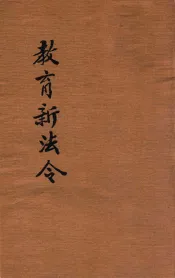 教育新法令